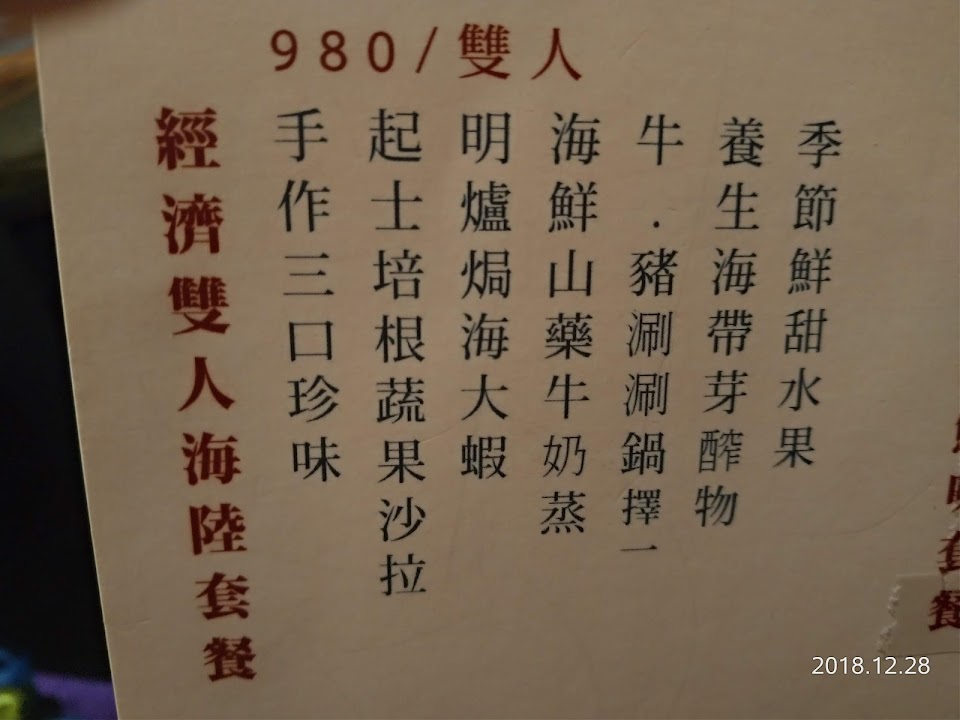 980/雙人
經濟雙人海陸套餐
手作三口珍味
起士培根蔬果沙拉
明爐焗海大蝦
海鮮山藥牛奶蒸
牛.豬涮涮鍋擇一
養生海帶芽醡物
季節鮮甜水果
套餐
2018.12.28